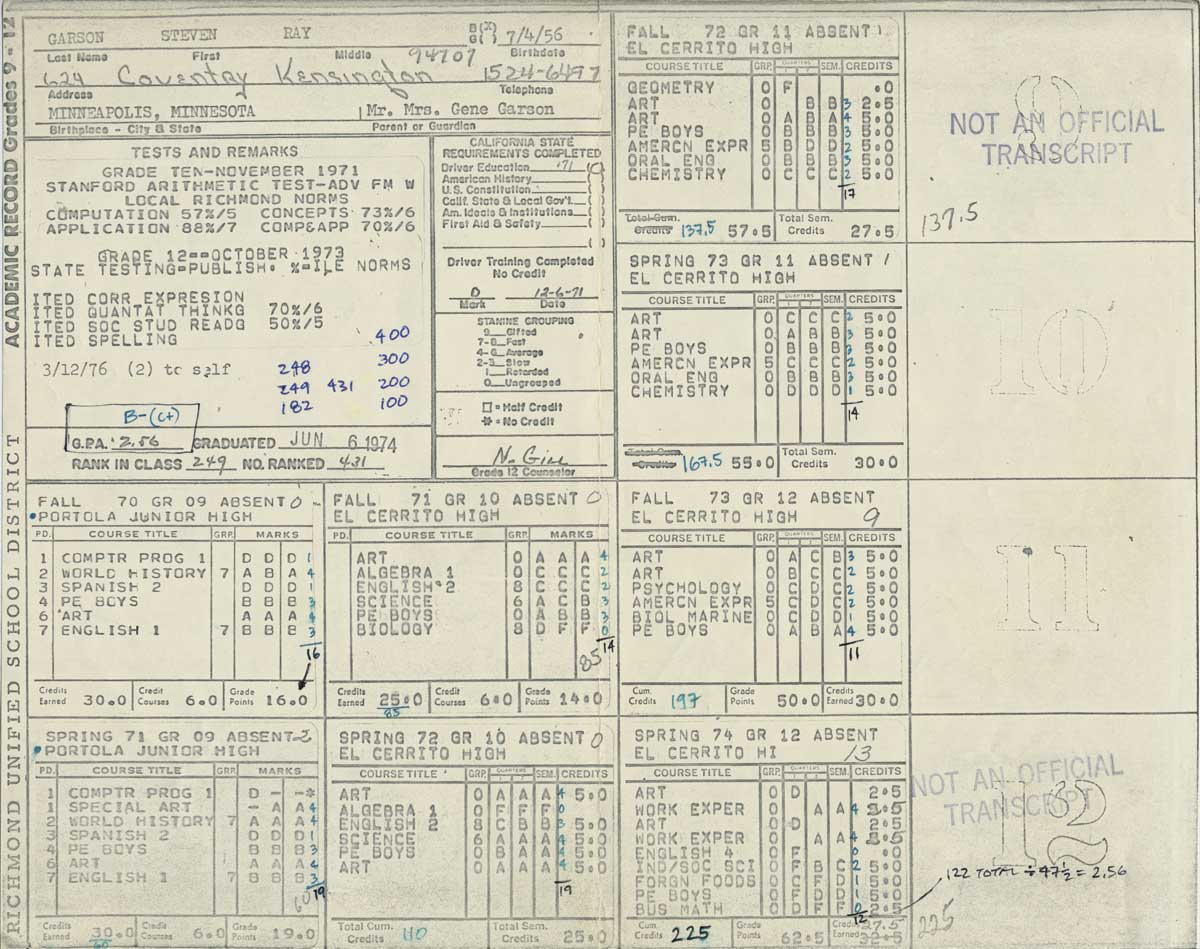 ACADEMIC RECORD Grades 9 - 12
RICHMOND UNIFIED SCHOOL DISTRICT
GARSON STEVEN RAY B(X) G( ) 7/4/56
Last Name First Middle Birthdate
94707
624 Coventry Kensington 1524-6497
Address Telephone
MINNEAPOLIS, MINNESOTA Mr. Mrs. Gene Garson
Birthplace - City & State Parent or Guardian
TESTS AND REMARKS
GRADE TEN-NOVEMBER 1971
STANFORD ARITHMETIC TEST-ADV FM W
LOCAL RICHMOND NORMS
COMPUTATION 57%/5 CONCEPTS 73%/6
APPLICATION 88%/7 COMP&APP 70%/6
GRADE 12--OCTOBER 1973
STATE TESTING-PUBLISH. %-ILE NORMS
ITED CORR EXPRESION
ITED QUANTAT THINKG 70%/6
ITED SOC STUD READG 50%/5
ITED SPELLING
400
3/12/76 (2) to self 248 300
249 431 200
182 100
B-(C+)
G.P.A. 2.56 GRADUATED JUN 6 1974
RANK IN CLASS 249 NO. RANKED 431
CALIFORNIA STATE
REQUIREMENTS COMPLETED
Driver Education 71 ( )
American History ( )
U.S. Constitution ( )
Calif. State & Local Gov't. ( )
Am. Ideals & Institutions ( )
First Aid & Safety ( )
( )
Driver Training Completed
No Credit
D 12-6-71
Mark Date
STANINE GROUPING
9 Gifted
7-8 Fast
4-6 Average
2-3 Slow
1 Retarded
0 Ungrouped
□ = Half Credit
* = No Credit
N. Gill
Grade 12 Counselor
FALL 70 GR 09 ABSENT 0
PORTOLA JUNIOR HIGH
PD. COURSE TITLE GRP. MARKS
1 COMPTR PROG 1 D D D 1
2 WORLD HISTORY 7 A B A 4
3 SPANISH 2 D D D 1
4 PE BOYS B B B 3
6 ART A A A 4
7 ENGLISH 1 7 B B B 3
16
Credits Earned 30.0 Credit Courses 6.0 Grade Points 16.0
SPRING 71 GR 09 ABSENT 2
PORTOLA JUNIOR HIGH
PD. COURSE TITLE GRP. MARKS
1 COMPTR PROG 1 D - -*
1 SPECIAL ART - A A 4
2 WORLD HISTORY 7 A A A 4
3 SPANISH 2 D D D 1
4 PE BOYS B B B 3
6 ART A A A 4
7 ENGLISH 1 7 B B B 3
60 19
Credits Earned 30.0 Credit Courses 6.0 Grade Points 19.0
60
FALL 71 GR 10 ABSENT 0
EL CERRITO HIGH
PD. COURSE TITLE GRP. MARKS
ART 0 A A A 4
ALGEBRA 1 0 C C C 2
ENGLISH 2 8 C C C 2
SCIENCE 6 A C B 3
PE BOYS 0 A B B 3
BIOLOGY 8 D F F 0
85 14
Credits Earned 25.0 Credit Courses 6.0 Grade Points 14.0
85
SPRING 72 GR 10 ABSENT 0
EL CERRITO HIGH
COURSE TITLE GRP. QUARTERS 1 2 SEM. CREDITS
ART 0 A A A 4 5.0
ALGEBRA 1 0 F F F 0
ENGLISH 2 8 C B B 3 5.0
SCIENCE 6 A A A 4 5.0
PE BOYS 0 B A A 4 5.0
ART 0 A A A 4 5.0
19
Total Cum. Credits 110 Total Sem. Credits 25.0
FALL 72 GR 11 ABSENT 1
EL CERRITO HIGH
COURSE TITLE GRP. QUARTERS 1 2 SEM. CREDITS
GEOMETRY 0 F .0
ART 0 B B 3 2.5
ART 0 A B A 4 5.0
PE BOYS 0 B B B 3 5.0
AMERCN EXPR 5 B D D 2 5.0
ORAL ENG 0 B B B 3 5.0
CHEMISTRY 0 C C C 2 5.0
17
Total Cum. Credits 137.5 57.5 Total Sem. Credits 27.5
SPRING 73 GR 11 ABSENT 1
EL CERRITO HIGH
COURSE TITLE GRP. QUARTERS 1 2 SEM. CREDITS
ART 0 C C C 2 5.0
ART 0 A B B 3 5.0
PE BOYS 0 B B B 3 5.0
AMERCN EXPR 5 C C C 2 5.0
ORAL ENG 0 B B B 3 5.0
CHEMISTRY 0 D D D 1 5.0
14
Total Cum. Credits 167.5 55.0 Total Sem. Credits 30.0
FALL 73 GR 12 ABSENT
EL CERRITO HIGH 9
COURSE TITLE GRP. QUARTERS 1 2 SEM. CREDITS
ART 0 A C B 3 5.0
ART 0 B C C 2 5.0
PSYCHOLOGY 0 C D C 2 5.0
AMERCN EXPR 5 C D C 2 5.0
BIOL MARINE 0 C D D 1 5.0
PE BOYS 0 A B A 4 5.0
11
Cum. Credits 197 Grade Points 50.0 Credits Earned 30.0
SPRING 74 GR 12 ABSENT
EL CERRITO HI 13
COURSE TITLE GRP. QUARTERS 1 2 SEM. CREDITS
ART 0 D 2.5
WORK EXPER A A 4 2.5
ART 0 D 2.5
WORK EXPER A A 4
ENGLISH 4 0 F 0 .0
IND/SOC SCI 0 F B C 2 5.0
FORGN FOODS 0 C F D 1 5.0
PE BOYS 0 F D D 1 5.0
BUS MATH 0 D F F 0 2.5
12
Cum. Credits 225 Grade Points 62.5 Credits Earned 27.5 32.5
9
NOT AN OFFICIAL
TRANSCRIPT
137.5
10
11
12
NOT AN OFFICIAL
TRANSCRIPT
122 TOTAL ÷ 47½ = 2.56
225